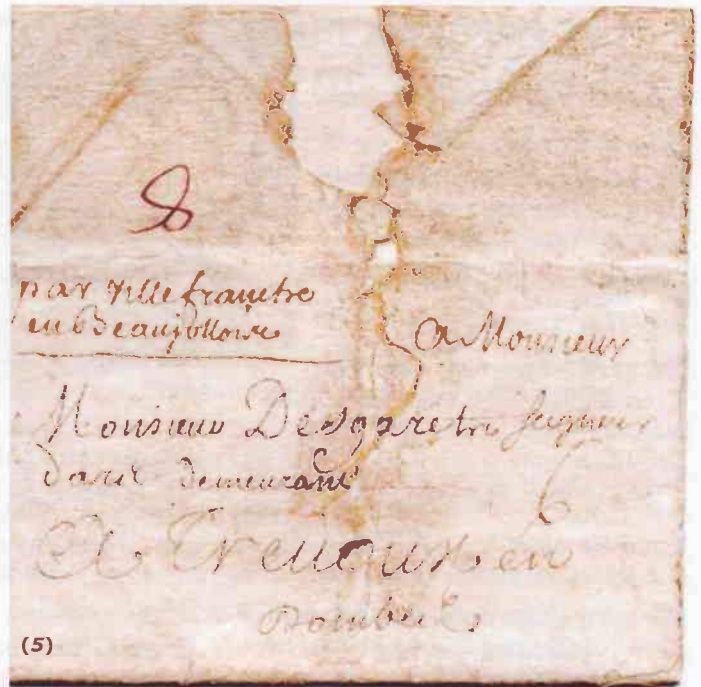 8
par ville franche
en Beaujollois
A Monsieur
Monsieur Desgarets
demeurant
A Trevoux en
Dombes
(5)